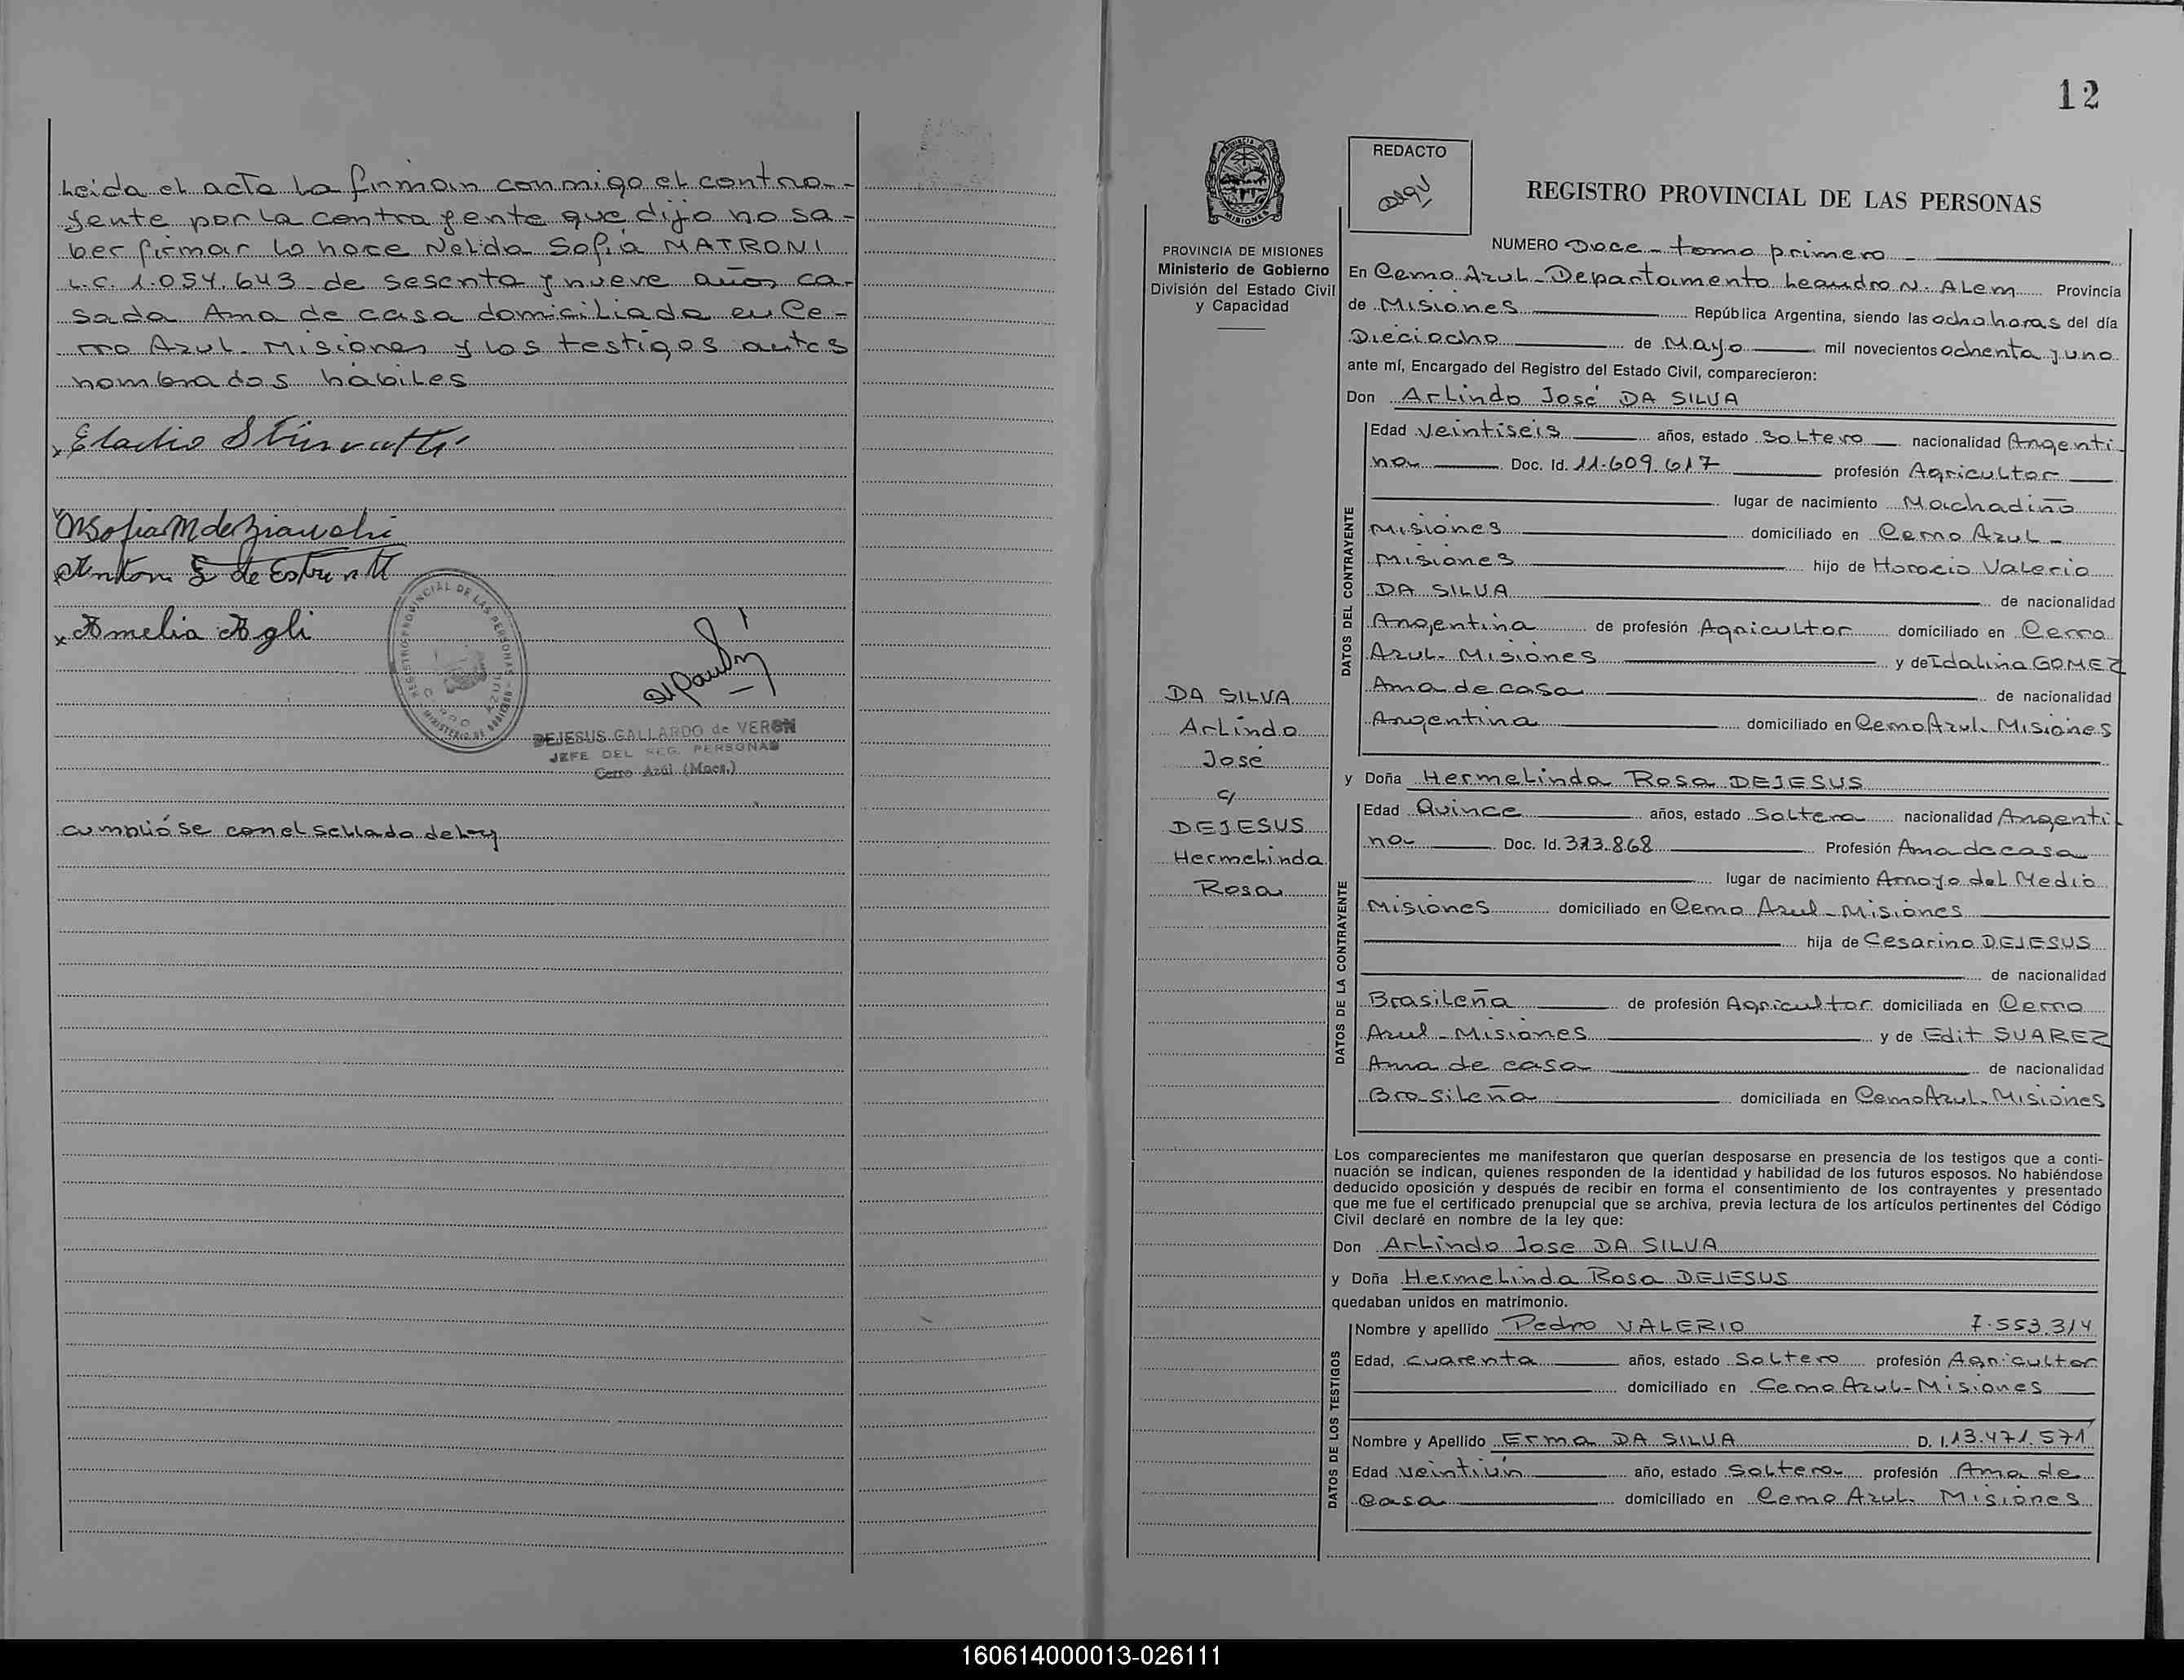 Leida el acta la firman conmigo el contra-
yente por la contrayente que dijo no sa-
ber firmar lo hace Nelida Sofía MATRONI
L.C. 1.054.643 de sesenta y nueve años ca-
sada Ama de casa domiciliada en Ce-
rro Azul. Misiones y los testigos antes
nombrados hábiles
Amelia Agli
REGISTRO PROVINCIAL DE LAS PERSONAS
DEJESUS GALLARDO de VERON
JEFE DEL REG. PERSONAS
Cerro Azul (Mnes.)
cumplióse con el sellado de ley
12
PROVINCIA DE MISIONES
Ministerio de Gobierno
División del Estado Civil
y Capacidad
DA SILVA
Arlindo
José
c/
DEJESUS
Hermelinda
Rosa
REDACTO
REGISTRO PROVINCIAL DE LAS PERSONAS
NUMERO Doce - tomo primero
En Cerro Azul - Departamento Leandro N. Alem Provincia
de Misiones República Argentina, siendo las ocho horas del día
Dieciocho de Mayo mil novecientos ochenta y uno
ante mí, Encargado del Registro del Estado Civil, comparecieron:
Don Arlindo José DA SILVA
DATOS DEL CONTRAYENTE
Edad veintiseis años, estado Soltero nacionalidad Argenti
na Doc. Id. 11.609.617 profesión Agricultor
lugar de nacimiento Machadiño
Misiones domiciliado en Cerro Azul -
Misiones hijo de Horacio Valerio
DA SILVA de nacionalidad
Argentina de profesión Agricultor domiciliado en Cerro
Azul - Misiones y de Idalina GOMEZ
Ama de casa de nacionalidad
Argentina domiciliado en Cerro Azul. Misiones
y Doña Hermelinda Rosa DEJESUS
DATOS DE LA CONTRAYENTE
Edad Quince años, estado Soltera nacionalidad Argenti
na Doc. Id. 373.868 Profesión Ama de casa
lugar de nacimiento Arroyo del Medio
Misiones domiciliado en Cerro Azul - Misiones
hija de Cesarino DEJESUS
de nacionalidad
Brasileña de profesión Agricultor domiciliada en Cerro
Azul - Misiones y de Edit SUAREZ
Ama de casa de nacionalidad
Brasileña domiciliada en Cerro Azul. Misiones
Los comparecientes me manifestaron que querían desposarse en presencia de los testigos que a conti-
nuación se indican, quienes responden de la identidad y habilidad de los futuros esposos. No habiéndose
deducido oposición y después de recibir en forma el consentimiento de los contrayentes y presentado
que me fue el certificado prenupcial que se archiva, previa lectura de los artículos pertinentes del Código
Civil declaré en nombre de la ley que:
Don Arlindo Jose DA SILVA
y Doña Hermelinda Rosa DEJESUS
quedaban unidos en matrimonio.
DATOS DE LOS TESTIGOS
Nombre y apellido Pedro VALERIO 7.553.314
Edad, cuarenta años, estado Soltero profesión Agricultor
domiciliado en Cerro Azul - Misiones
Nombre y Apellido Erma DA SILVA D. I. 13.471.571
Edad veintiún año, estado Soltera profesión Ama de
casa domiciliado en Cerro Azul. Misiones
160614000013-026111